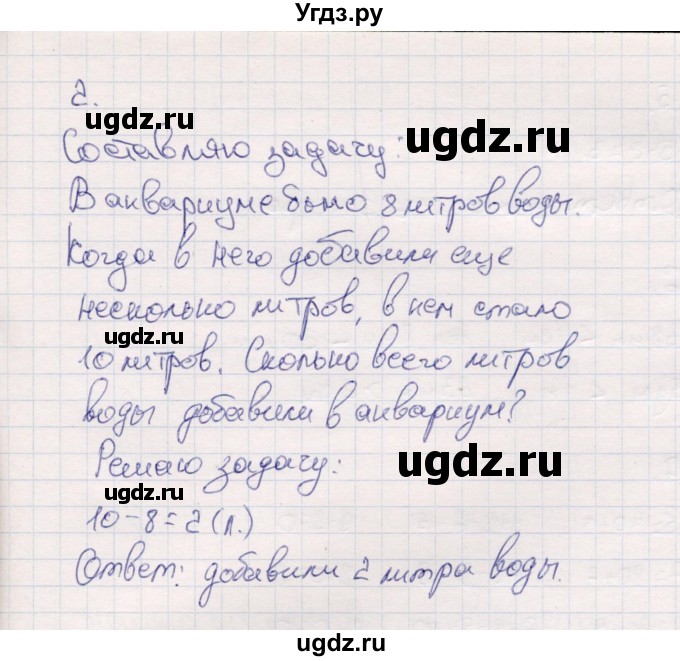 Угдз.ру
2.
ugdz.ru
ugdz.ru
Составляю задачу:
В аквариуме было 8 литров воды.
Когда в него добавили еще
несколько литров, в нем стало
ugdz.ru
10 литров. Сколько всего литров
воды добавили в аквариум?
Решаю задачу:
ugdz.ru
10-8=2 (л.)
Ответ: добавили 2 литра воды.
ugdz.ru